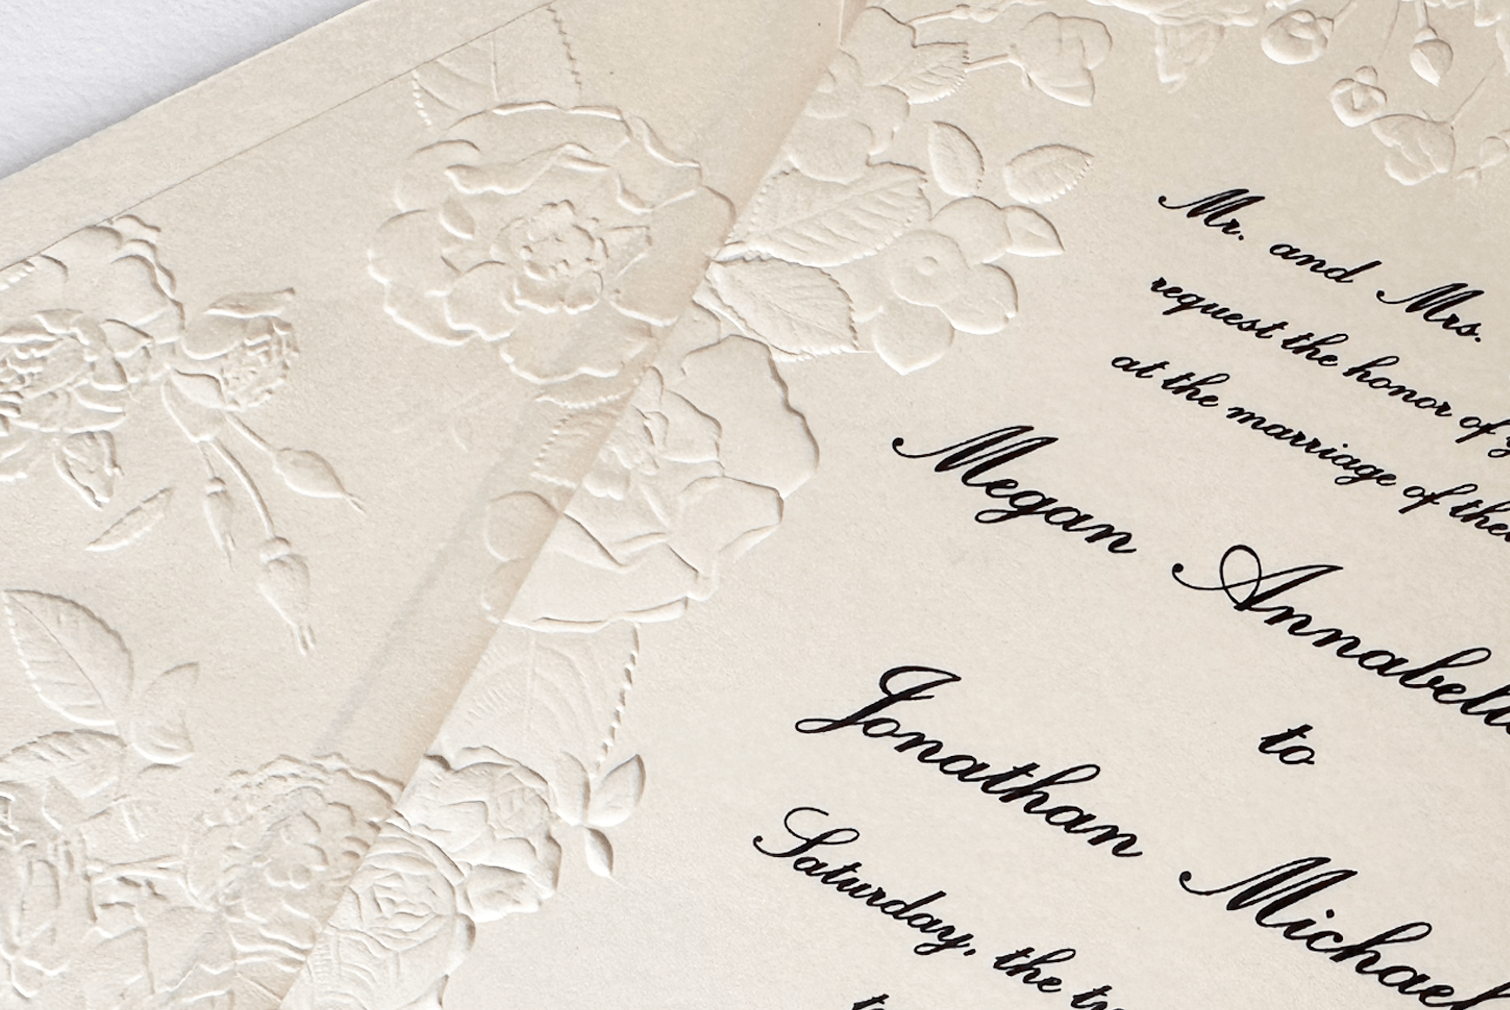 Mr. and Mrs.
request the honor of
at the marriage of
Megan
to
Jonathan Michael
Saturday, the